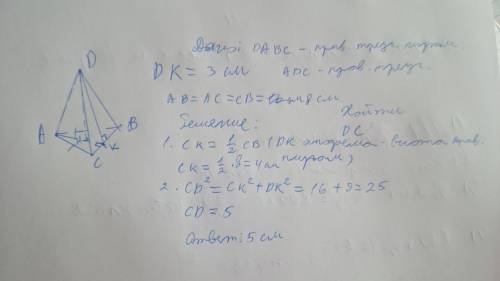 D
A
B
C
K
Дано: DABC - прав. треуг. пирам
DK = 3 см
ADC - прав. треуг.
AB = AC = CB = 8 см
Найти
DC
Решение:
1. CK = 1/2 CB (DK апофема - высота прав.
CK = 1/2 · 8 = 4 см пирам)
2. CD² = CK² + DK² = 16 + 9 = 25
CD = 5
Ответ: 5 см